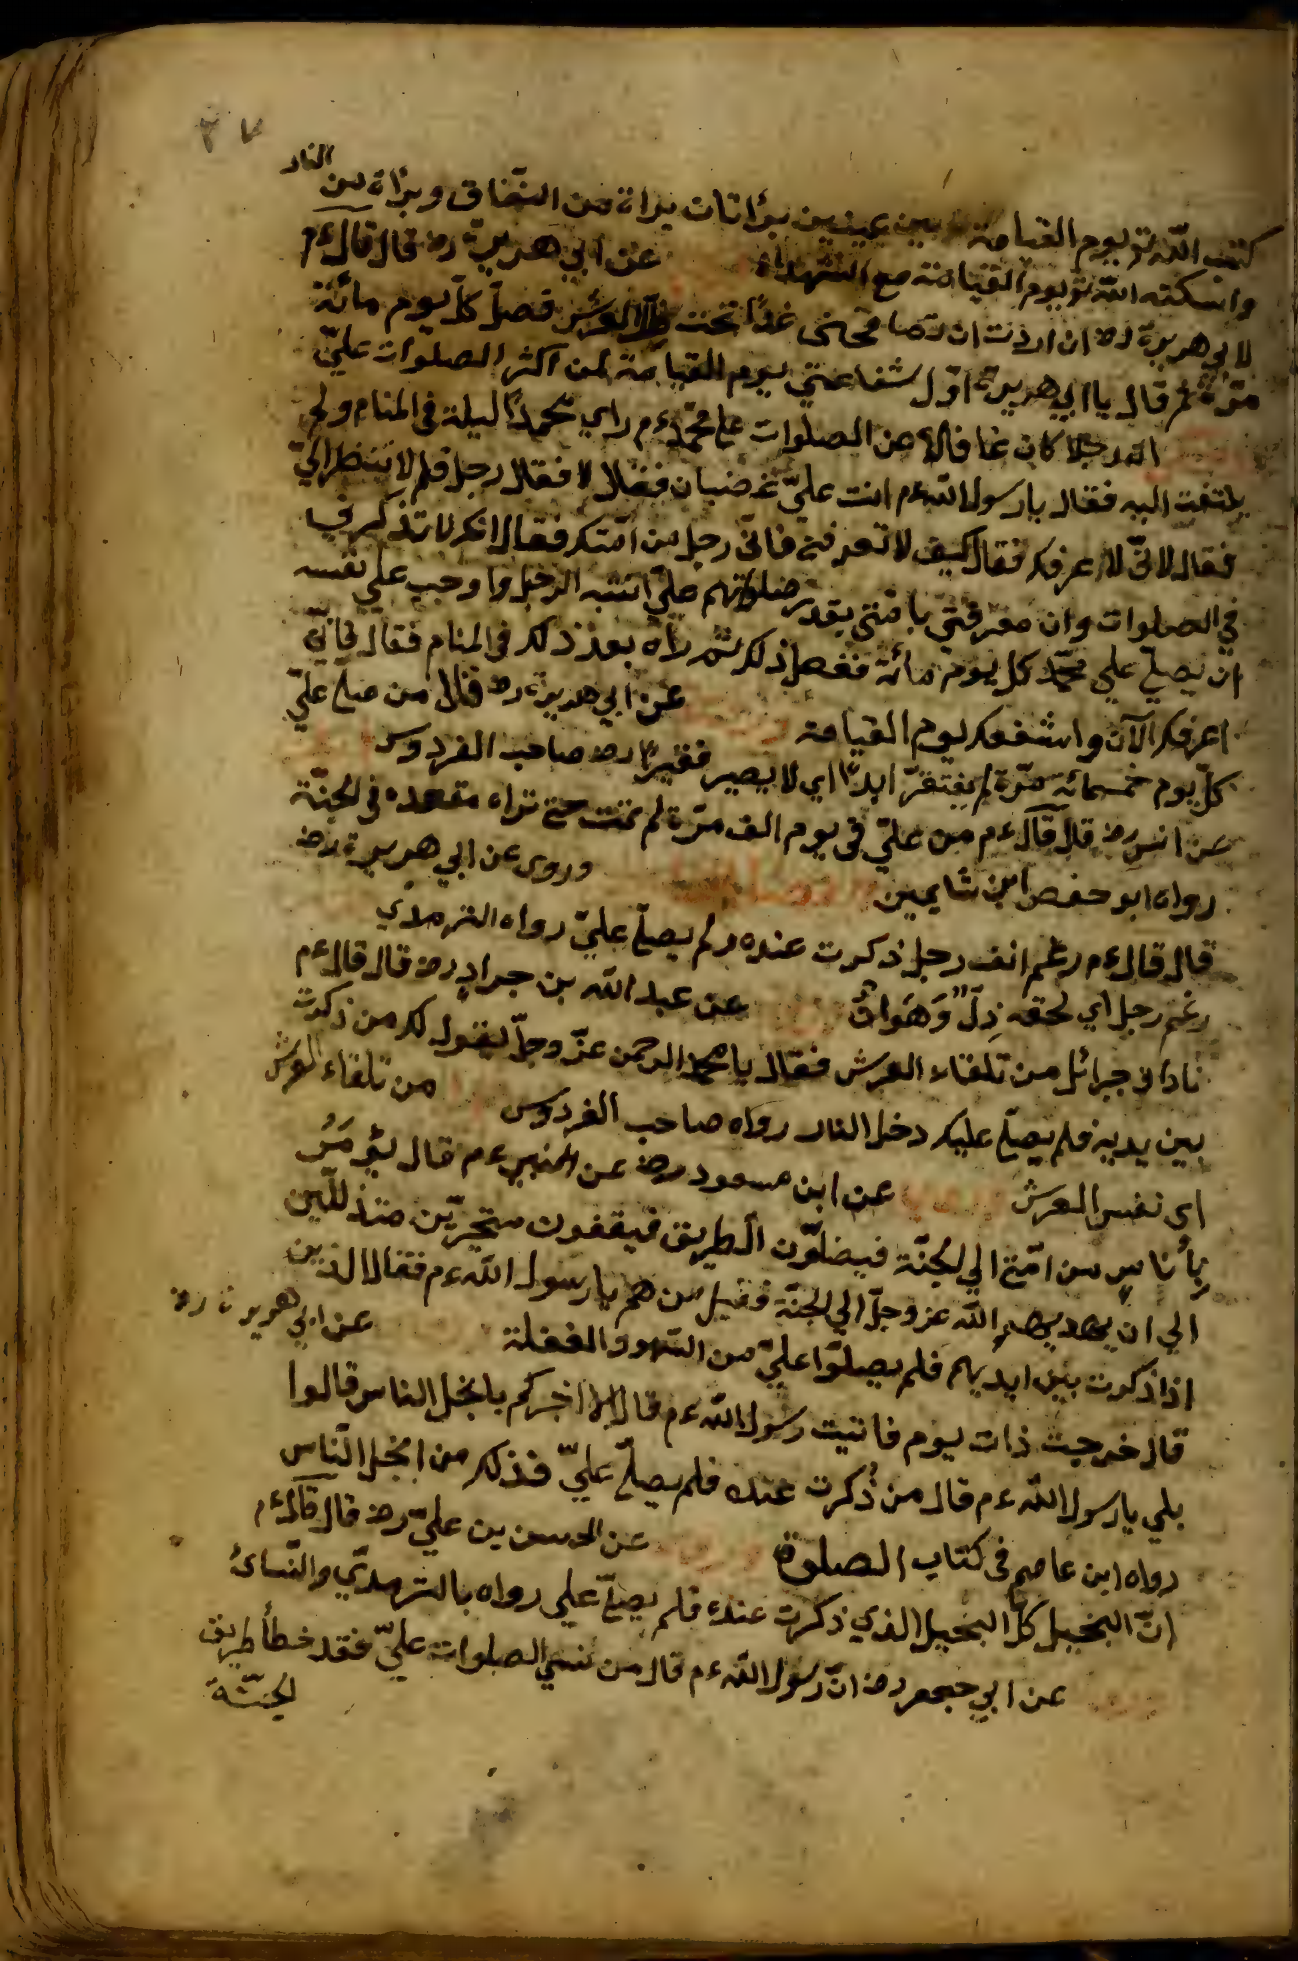 ٣٧
كتب الله تع يوم القيامة بين عينين برأتان براة من النّفاق وبرأة من النار
واسكته الله تع يوم القيامة مع الشهداء عن ابي هريرة رض قال قال ءم
لابي هريرة رض ان اردت ان تصافحني غدًا تحت ظلّ العرش فصلّ كلّ يوم مائة
مرّة ثم قال يا ابي هريرة اوّل شفاعتي يوم القيامة لمن اكثر الصلوات عليّ
انّ رجلا كان غافلا عن الصلوات على محمّد ءم راي محمدًا ليلة في المنام ولم
يلتفت اليه فقال يا رسول الله ءم انت عليّ غضبان فقال لا فقال رجل فلم لا تنظر اليّ
فقال لانّي لا اعرفك فقال كيف لا تعرفني فانّي رجل من امّتك فقال انك لا تذكرني
في الصلوات وان معرفتي بامّتي بقدر صلوتهم عليّ انتبه الرجل واوجب على نفسه
ان يصلّي علي محمّد كل يوم مائة ففعل ذلك ثم راه بعد ذلك في المنام فقال فانّي
اعرفك الآن واشفعك يوم القيامة عن ابي هريرة رض قال من صلّى عليّ
كلّ يوم خمسمائة مرّة لم يفتقرّ ابدًا اي لا يصير فقيرًا رض صاحب الفردوس
عن انس رض قال قال ءم من عليّ في يوم الف مرّة لم يمت حتي تراه مقعده في الجنّة
رواه ابو حفص ابن شايمين وروي عن ابي هريرة رض
قال قال ءم رغم انف رجل ذكرت عنده ولم يصلّ عليّ رواه الترمذي
رغم رجل اي لحقه ذِلّ وَهَوانٌ عن عبد الله بن جراد رض قال قال ءم
ناداني جبرائل من تلقاء العرش فقال يا محمد الرحمن عزّ وجلّ يقول لك من ذكرت
بين يديه فلم يصلّ عليك دخل النار رواه صاحب الفردوس من تلقاء العرش
اي نفس العرش عن ابن مسعود رض عن النبي ءم قال يؤمَرُ
بأناسٍ من امّتي الي الجنّة فيضلّون الطريق فيقفون متحيرّين متذللّين
الي ان يهديهم الله عز وجلّ الي الجنّة فقيل من هم يا رسول الله ءم فقال الذين
اذا ذكرت بين ايديهم فلم يصلّوا عليّ من السّهو والغفلة عن ابي هريرة رض
قال خرجت ذات يوم فاتيت رسول الله ءم قال الا اخبركم بابخل الناس قالوا
بلي يا رسول الله ءم قال من ذُكرت عنده فلم يصلّ عليّ فذلك من ابخل النّاس
رواه ابن عاصم في كتاب الصلوة عن الحسن بن عليّ رض قال قال ءم
انّ البخيل كلّ البخيل الذي ذكرت عنده فلم يصلّ علي رواه بالترمذّي والنّسائ
عن ابي جعفر رض انّ رسول الله ءم قال من نسي الصلوات عليّ فقد خطأ طريق
الجنّة